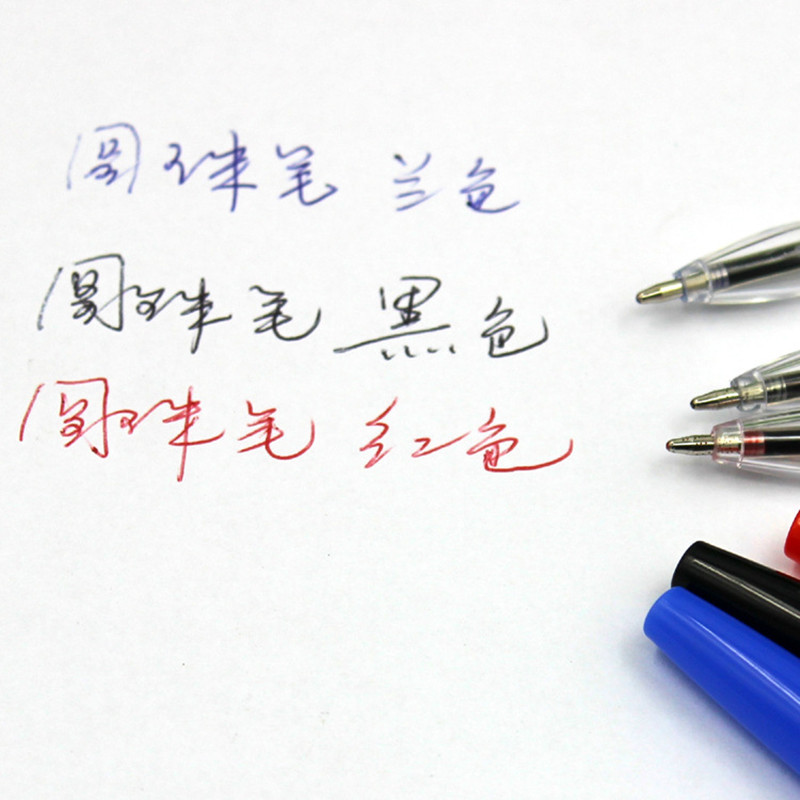 圆珠笔 兰色
圆珠笔 黑色
圆珠笔 红色